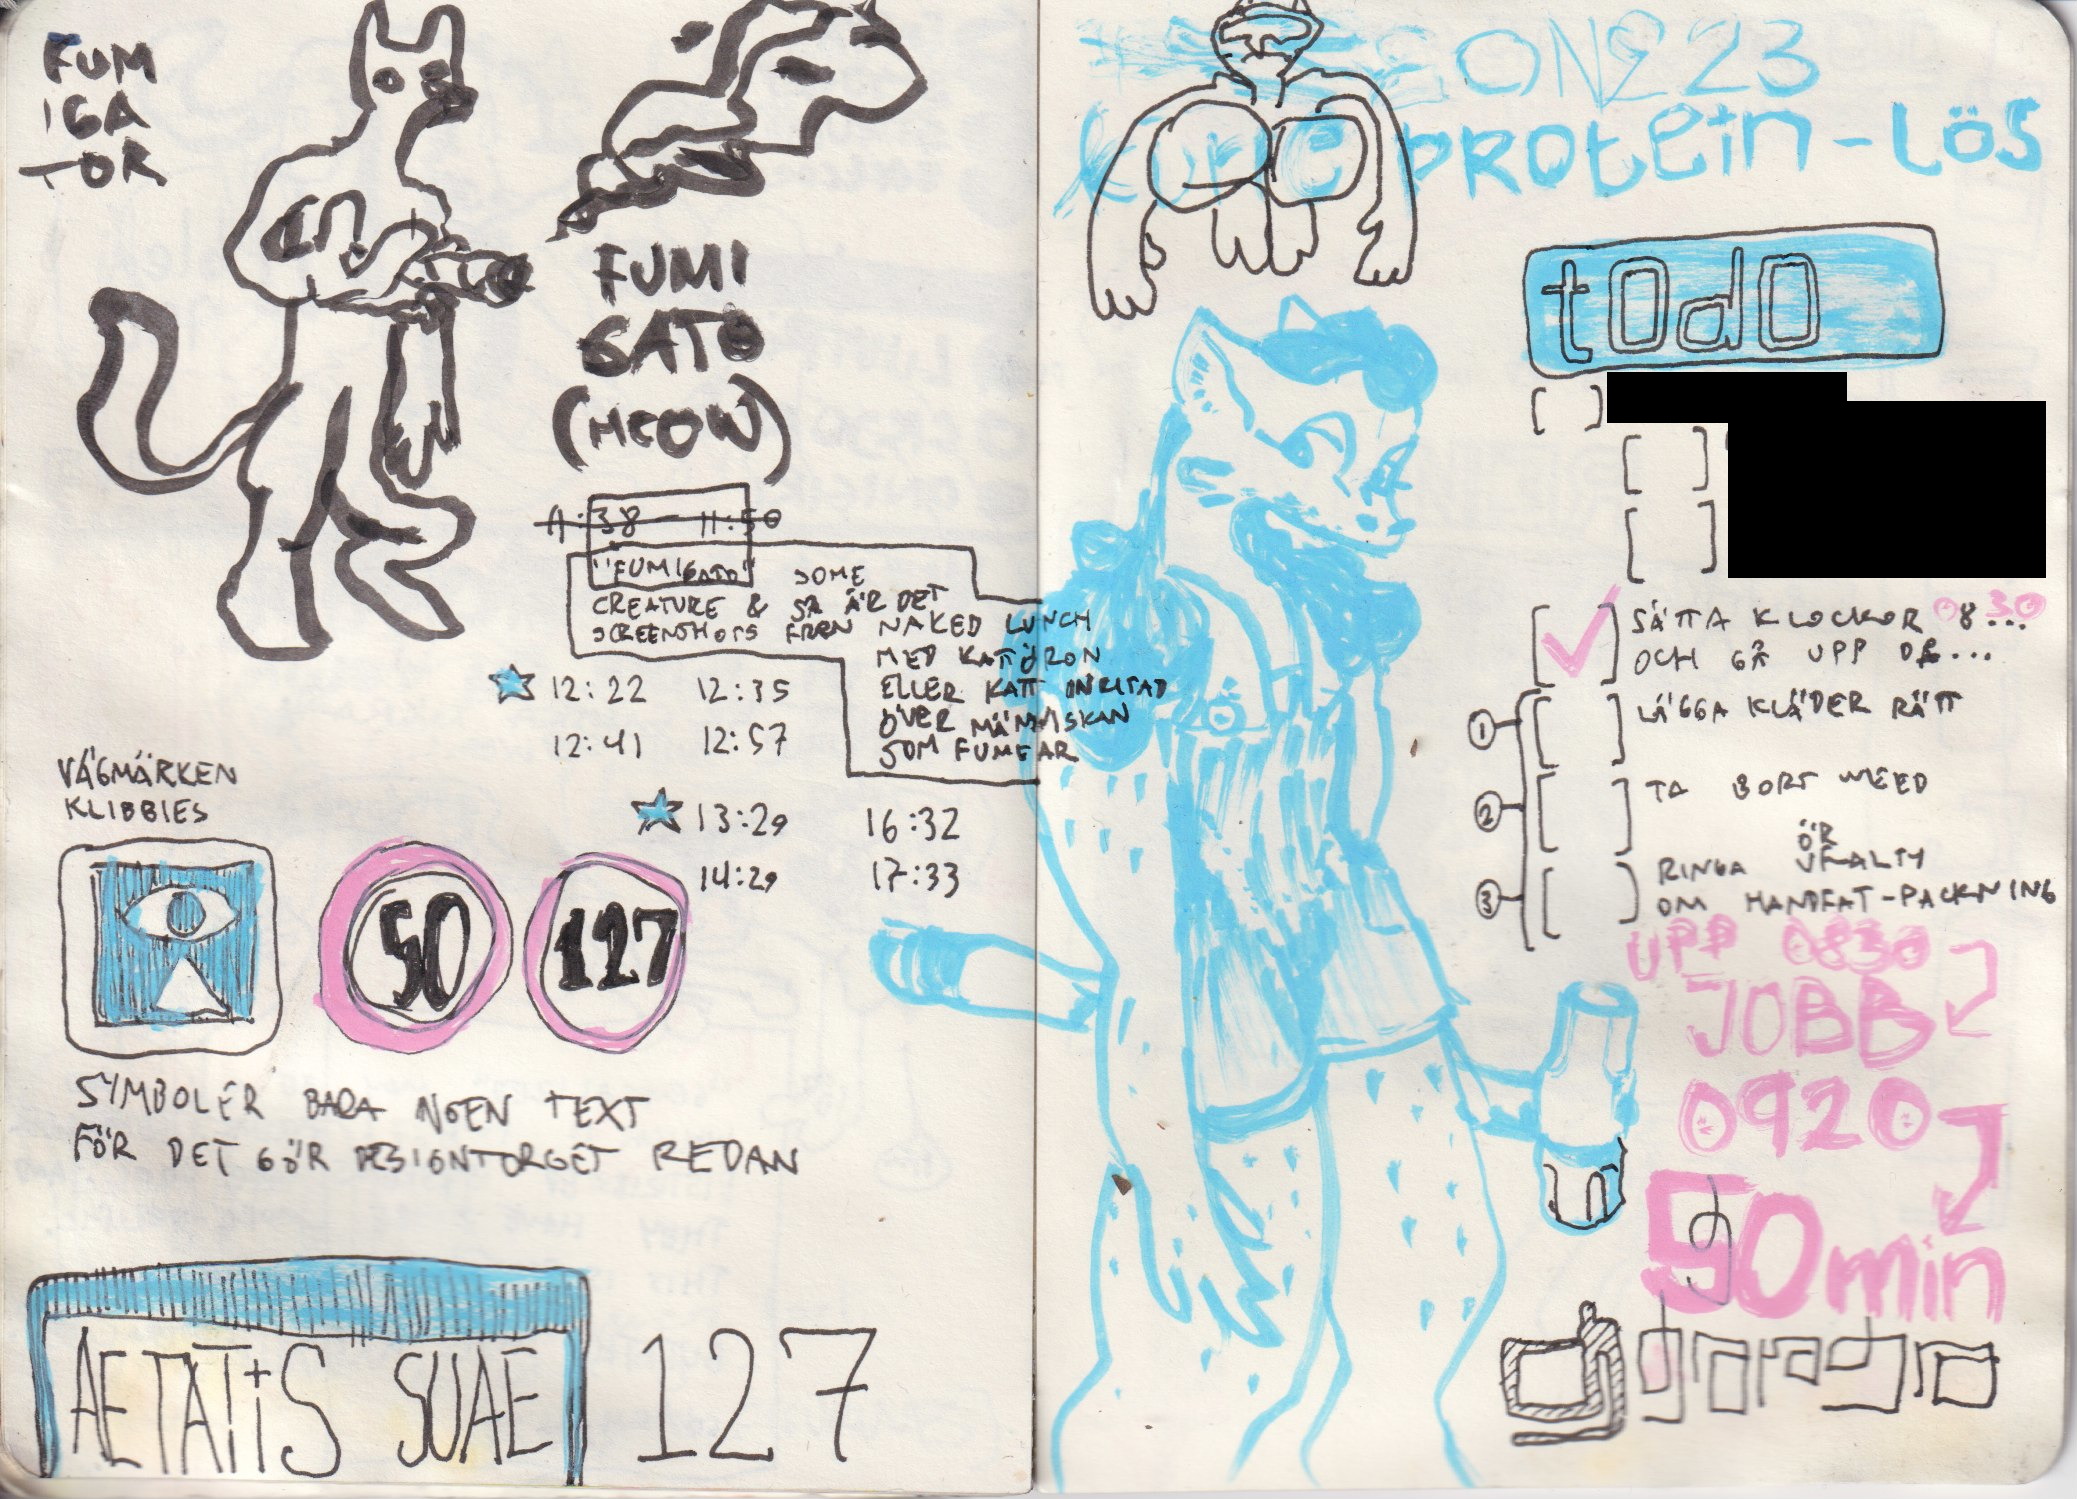 FUM
IGA
TOR
FUMI
SATO
(MEOW)
11:38 - 11:50
"FUMIGATO" SOME
CREATURE & SÅ ÄR DET
SCREENSHOTS FRÅN NAKED LUNCH
MED KATTÖRON
ELLER KATT INRITAD
ÖVER MÄNNISKAN
SOM FUMEAR
12:22 12:35
12:41 12:57
13:29 16:32
14:29 17:33
VÄGMÄRKEN
KLIBBIES
50
127
SYMBOLER BARA INGEN TEXT
FÖR DET GÖR DESIGNTORGET REDAN
AETATIS SUAE 127
ONE 23
PROTEIN-LÖS
tOdO
[ ]
[ ]
[ ]
[✓] SÄTTA KLOCKOR 0830...
OCH GÅ UPP DÅ...
① [ ] LÄGGA KLÄDER RÄTT
② [ ] TA BORT WEED
ÖR
③ [ ] RINGA
OM HANDFAT-PACKNING
UPP 0830
JOBB
0920
50min